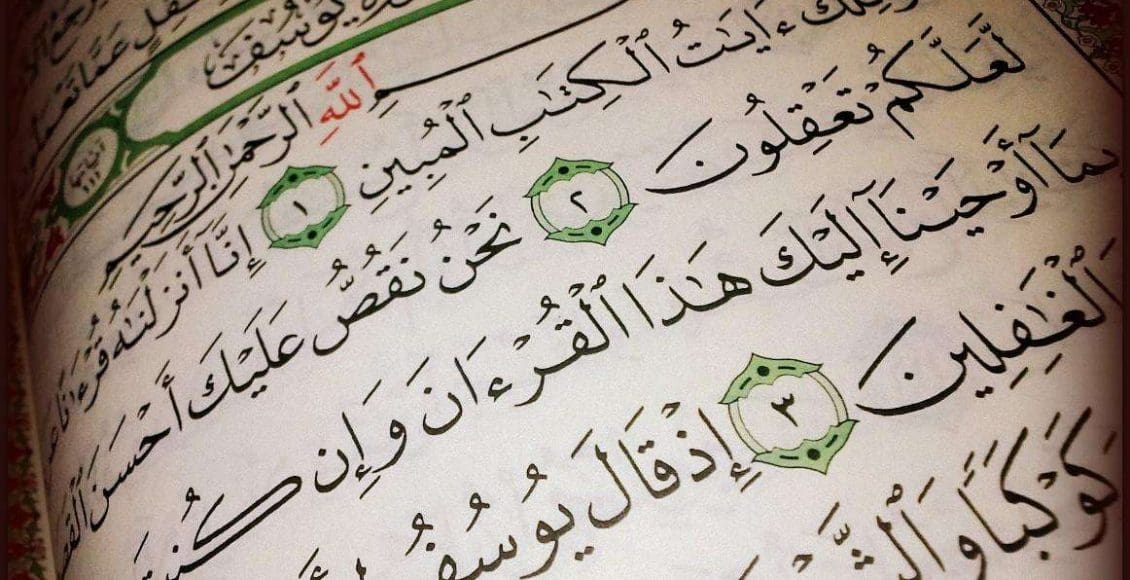 عَمَّا تَعْمَلُونَ
سُورَةُ يُوسُفَ
ٱللَّهِ ٱلرَّحْمَٰنِ ٱلرَّحِيمِ
ءَايَٰتُ ٱلْكِتَٰبِ ٱلْمُبِينِ ١ إِنَّآ أَنزَلْنَٰهُ قُرْءَٰنًا
لَّعَلَّكُمْ تَعْقِلُونَ ٢ نَحْنُ نَقُصُّ عَلَيْكَ أَحْسَنَ
بِمَآ أَوْحَيْنَآ إِلَيْكَ هَٰذَا ٱلْقُرْءَانَ وَإِن
ٱلْغَٰفِلِينَ ٣ إِذْ قَالَ يُوسُفُ
كَوْكَبًا